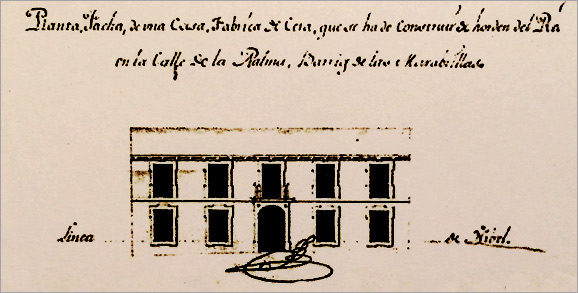 Planta, y Facha, de una Casa, Fabrica de Cera, que se ha de Construir de horden del Rl
en la Calle de la Palma, Barrio de las Marabillas
Linea de Nibel.